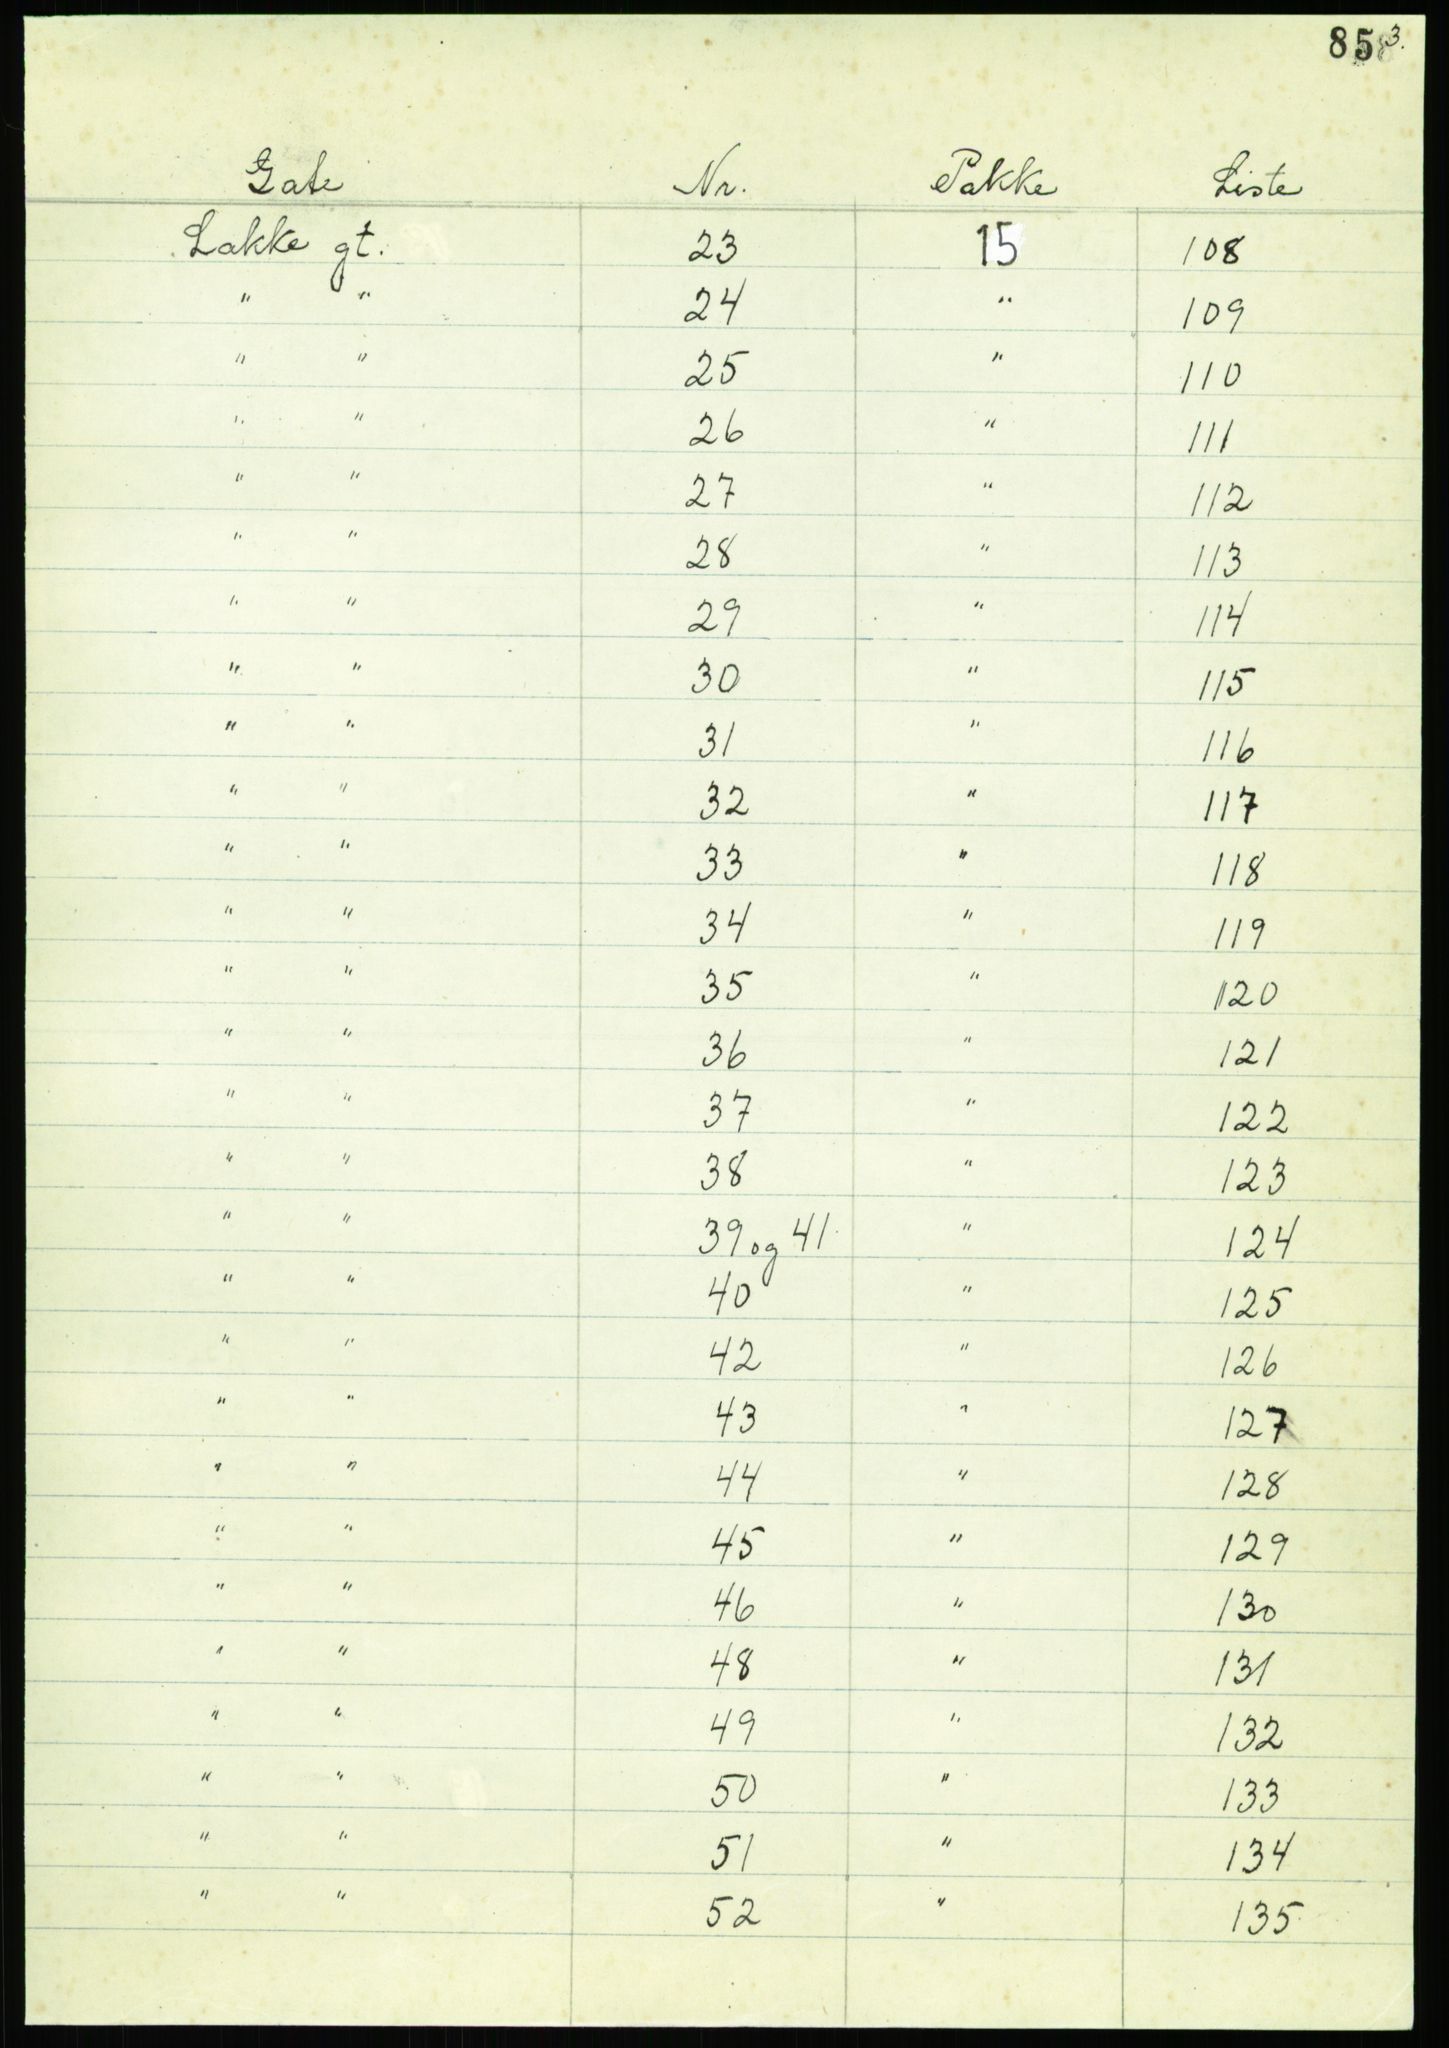 853.
Gate Nr. Pakke Liste
Lakke gt. 23 15 108
" " 24 " 109
" " 25 " 110
" " 26 " 111
" " 27 " 112
" " 28 " 113
" " 29 " 114
" " 30 " 115
" " 31 " 116
" " 32 " 117
" " 33 " 118
" " 34 " 119
" " 35 " 120
" " 36 " 121
" " 37 " 122
" " 38 " 123
" " 39 og 41 " 124
" " 40 " 125
" " 42 " 126
" " 43 " 127
" " 44 " 128
" " 45 " 129
" " 46 " 130
" " 48 " 131
" " 49 " 132
" " 50 " 133
" " 51 " 134
" " 52 " 135